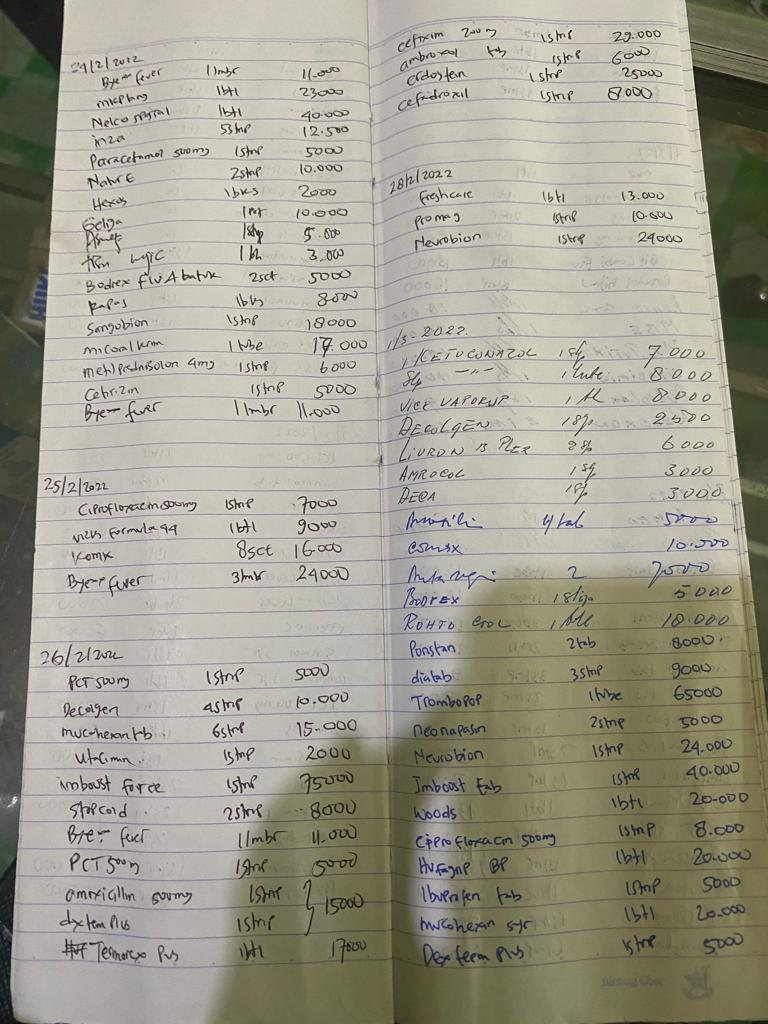 24/2/2022
Bye- fever 1 lmbr 11.000
1btl 23000
Nelco spesial 1btl 40.000
inza 5strp 12.500
Paracetamol 500mg 1strp 5000
Natur E 2strp 10.000
Hexos 1bks 2000
10.000
5.000
3.000
Bodrex Flu & batuk 2sct 5000
Kapas 1bks 8000
Sangobion 1strp 18000
1 tube
metilprednisolon 4mg 1strp 6000
Cetirizin 1strp 5000
Bye- fever 1 lmbr 11.000
25/2/2022
Ciprofloxacin 500mg 1strp 7000
Vicks Formula 44 1btl 9000
Komx 8sct 16.000
Bye- fever 3lmbr 24000
26/2/2022
PCT 500mg 1strp 5000
Decolgen 4strp 10.000
mucohexan tb. 1 6strp 15.000
1strp 2000
imboust force 1strp 75000
Stopcold 2strp 8000
Bye- fever 1 lmbr 11.000
PCT 500mg 1strp 5000
amoxicillin 500mg 1strp
dxtem Plus 1strp 15000
Termorex Plus 1btl 17000
cefixim 200mg 1strp 29.000
ambroxol tab 1strp 6000
erdostein 1strp 25000
cefadroxil 1strp 8.000
28/2/2022
Freshcare 1btl 13.000
promag 1strp 10.000
Neurobion 1strp 24000
1/3-2022.
KETOCONAZOL 1 7.000
1 tube 8.000
VICK VAPORUP 1 8.000
DECOLGEN 2500
6000
3000
3.000
4 tab 5000
10.000
2 7500
BODREX 1 Strip 5.000
ROHTO COOL 1 btl 18.000
Ponstan 2tab 8000
diatab 3strp 9000
TromboPOP 1tube 65000
Neonapasin 2strp 5000
Neurobion 1strp 24.000
Imboost tab 1strp 40.000
Woods 1btl 20.000
Ciprofloxacin 500mg 1strp 8.000
Hufagrip BP 1btl 20.000
Ibuprofen tab 1strp 5000
mucohexan syr 1btl 20.000
Dexteem Plus 1strp 5000